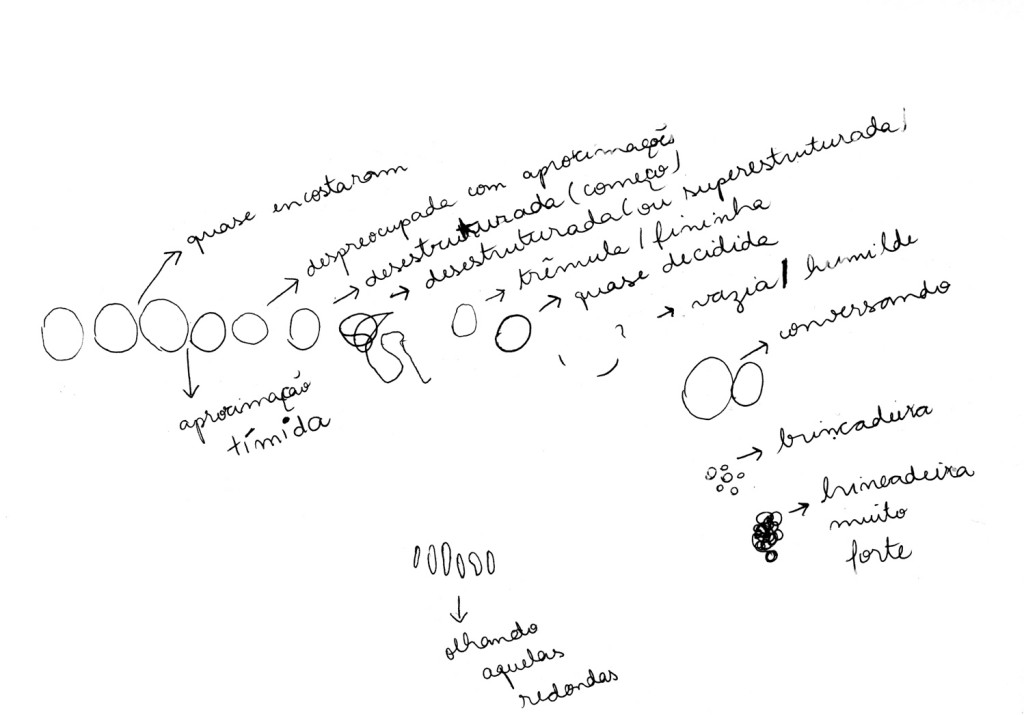 quase encostaram
despreocupada com aproximações
desestruturada (começo)
desestruturada (ou superestruturada)
trêmula / fininha
quase decidida
vazia / humilde
conversando
aproximação
tímida
brincadeira
brincadeira
muito
forte
olhando
aquelas
redondas